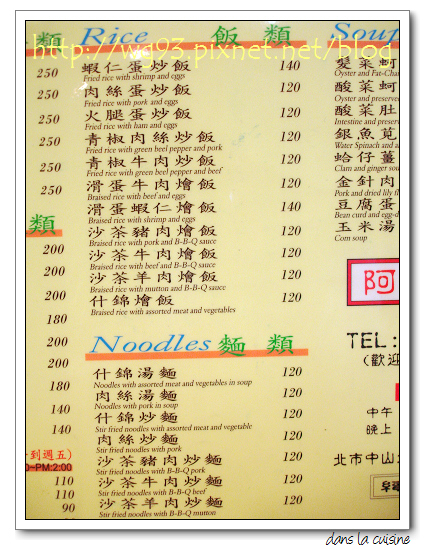 類 Rice 飯 類 Soup
http://wg93.pixnet.net/blog
250 蝦仁蛋炒飯 140
Fried rice with shrimp and eggs
250 肉絲蛋炒飯 120
Fried rice with pork and eggs
250 火腿蛋炒飯 120
Fried rice with ham and eggs
250 青椒肉絲炒飯 120
Fried rice with green beef pepper and pork
250 青椒牛肉炒飯 120
Fried rice with green beef pepper and beef
250 滑蛋牛肉燴飯 120
Braised rice with beef and eggs
滑蛋蝦仁燴飯 140
Braised rice with shrimp and eggs
類 沙茶豬肉燴飯 120
Braised rice with pork and B-B-Q sauce
200 沙茶牛肉燴飯 120
Braised rice with beef and B-B-Q sauce
200 沙茶羊肉燴飯 120
Braised rice with mutton and B-B-Q sauce
200 什錦燴飯 120
Braised rice with assorted meat and vegetables
180
200 Noodles 麵 類
200
什錦湯麵 120
Noodles with assorted meat and vegetables in soup
180 肉絲湯麵 120
Noodles with pork in soup
140 什錦炒麵 120
Stir fried noodles with assorted meat and vegetable
140 肉絲炒麵 120
Stir fried noodles with pork
到週五)
沙茶豬肉炒麵 120
Stir fried noodles with B-B-Q pork
0~PM:2:00
110 沙茶牛肉炒麵 120
Stir fried noodles with B-B-Q beef
110
90 沙茶羊肉炒麵 120
Stir fried noodles with B-B-Q mutton
髮菜蚵
Oyster and Fat-Cha
酸菜蚵
Oyster and preserved
酸菜肚
Intestine and preserve
銀魚莧
Water Spinach and a
蛤仔薑
Clam and ginger sou
金針肉
Pork and dried lily fl
豆腐蛋
Bean curd and egg-d
玉米湯
Corn soup
阿
TEL:
(歡迎
中午
晚上
北市中山
dans la cuisine